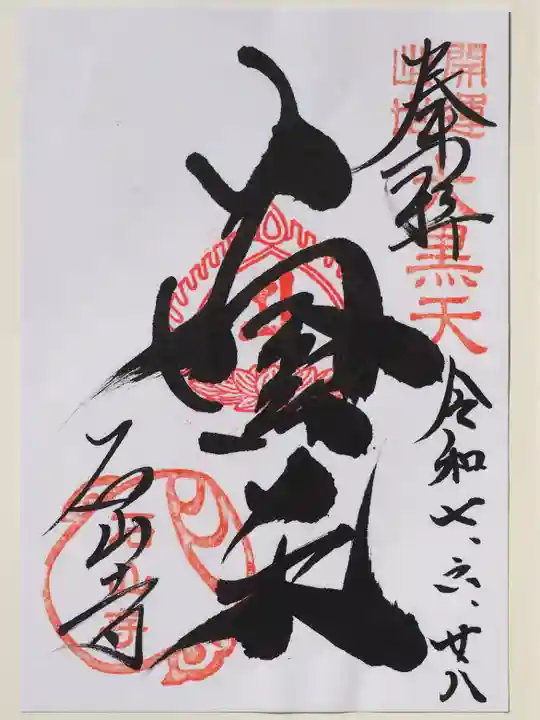 奉拝
開運
出世
大黒天
令和七、六、廿八
大黒天
石山寺